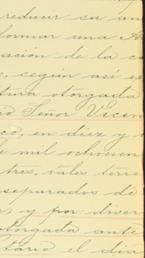 reducir su an
formar una A
sación de la c
, según así ex
tura otorgada
o Señor Vicen
co, en diez y
de mil ochocien
tres, vales terre
separados de
, y por diver
otorgada ante
tario el dia